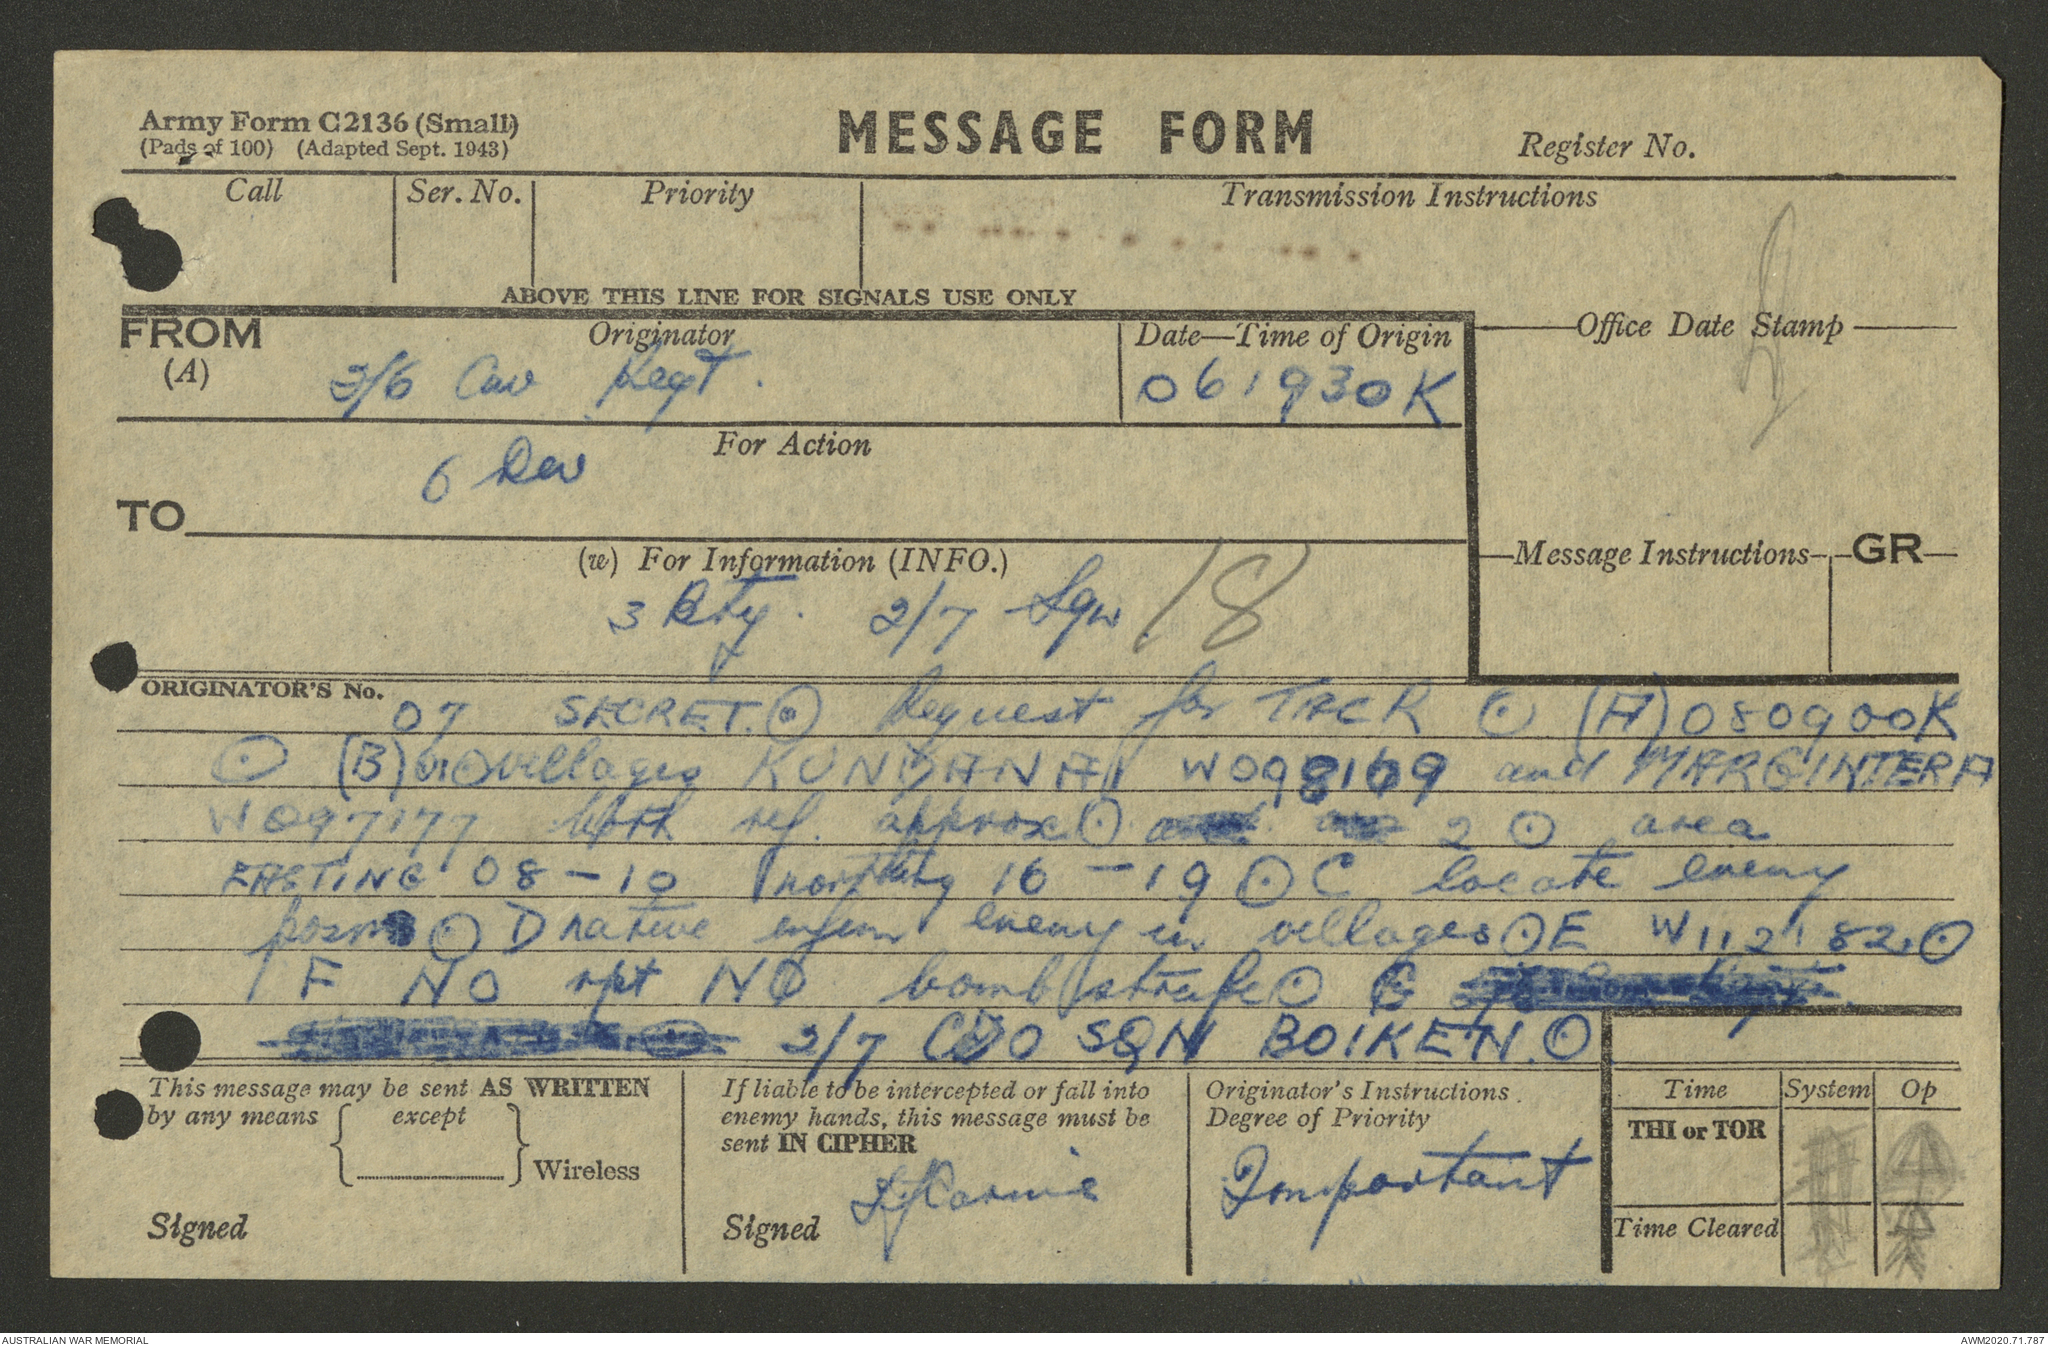 Army Form C2136 (Small)
(Pads of 100) (Adapted Sept. 1943)
MESSAGE FORM
Register No.
Call Ser. No. Priority Transmission Instructions
ABOVE THIS LINE FOR SIGNALS USE ONLY
FROM
(A)
Originator
2/6 Cav Regt.
Date—Time of Origin
061930K
Office Date Stamp
For Action
6 Div
TO
(w) For Information (INFO.)
3 Bty. 2/7 Sqn 18
Message Instructions GR
ORIGINATOR'S No.
07 SECRET. ⊙ Request for TACR ⊙ (A) 080900K
⊙ (B) villages KUNDANAI W098169 and MARGINTERA
W097177 both ref. approx ⊙ 2 ⊙ area
EASTING 08 - 10 northing 16 - 19 ⊙ C locate enemy
posns ⊙ D native inform enemy in villages ⊙ E W112182 ⊙
F NO rpt NO bomb strafe ⊙ G
2/7 CDO SQN BOIKEN. ⊙
This message may be sent AS WRITTEN
by any means { except } Wireless
Signed
If liable to be intercepted or fall into
enemy hands, this message must be
sent IN CIPHER
Signed
Originator's Instructions
Degree of Priority
Important
Time System Op
THI or TOR
Time Cleared
AUSTRALIAN WAR MEMORIAL
AWM2020.71.787